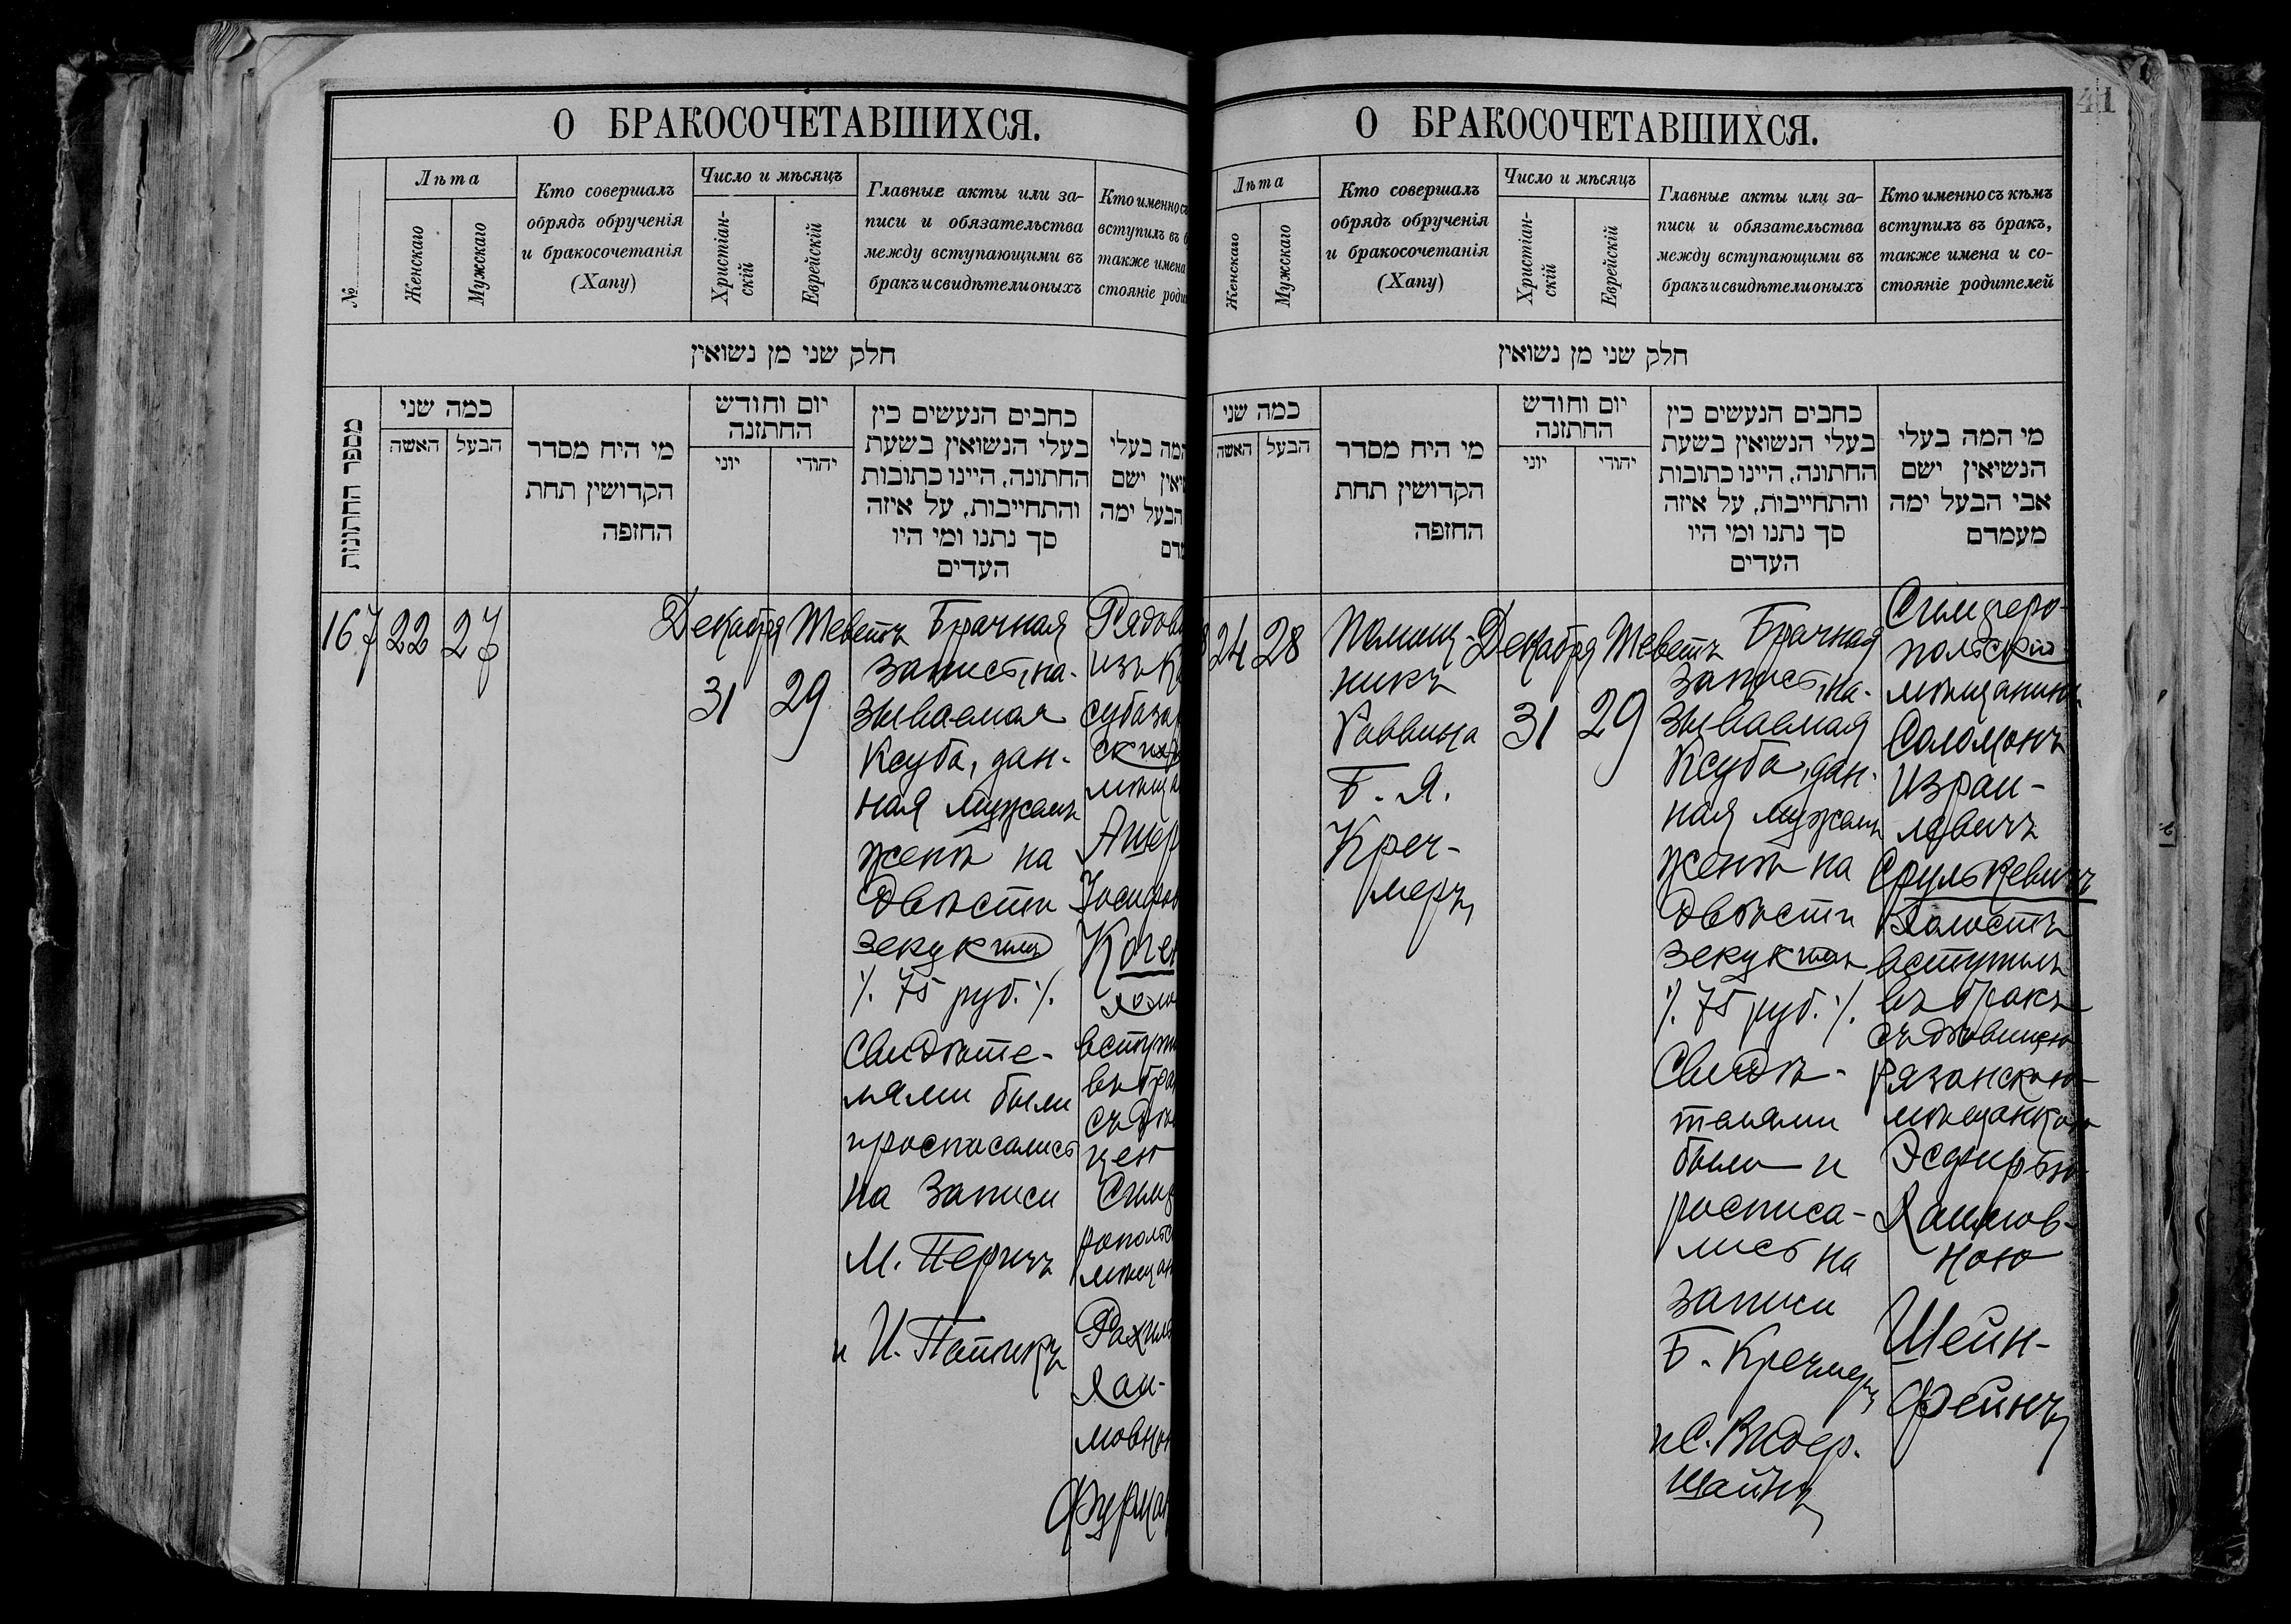 О БРАКОСОЧЕТАВШИХСЯ.
№
Лѣта
Женскаго
Мужскаго
Кто совершалъ
обрядъ обрученія
и бракосочетанія
(Хапу)
Число и мѣсяцъ
Христіан-
скій
Еврейскій
Главные акты или за-
писи и обязательства
между вступающими въ
бракъ и свидѣтели оныхъ
Кто именно съ
вступилъ въ б
также имена
стояніе роди
חלק שני מן נשואין
מספר החתונות
כמה שני
האשה
הבעל
מי היח מסדר
הקדושין תחת
החזפה
יום וחודש
החתזנה
יוני
יהודי
כחבים הנעשים כין
בעלי הנשואין בשעת
החתונה, היינו כתובות
והתחייבות, על איזה
סך נתנו ומי היו
העדים
המה בעלי
יאין ישם
הבעל ימה
מדם
167
22
27
Декабря
31
Теветъ
29
Брачная
запись, на-
зываемая
Ксуба, дан-
ная мужемъ
женѣ на
двѣсти
зекукимъ
٪ 75 руб. ٪
Свидѣте-
лями были
и росписались
на записи
М. Перичъ
и И. Патикъ
Рядово
изъ Ка
субаза
скихъ
мѣща
Ашер
Іосифов
Коген
холо
вступи
въ бра
съ дѣв
цею
Симф
рополь
мѣщан
Рахиль
Хаи-
мовно
Фурман
О БРАКОСОЧЕТАВШИХСЯ.
41
Лѣта
Женскаго
Мужскаго
Кто совершалъ
обрядъ обрученія
и бракосочетанія
(Хапу)
Число и мѣсяцъ
Христіан-
скій
Еврейскій
Главные акты или за-
писи и обязательства
между вступающими въ
бракъ и свидѣтели оныхъ
Кто именно съ кѣмъ
вступилъ въ бракъ,
также имена и со-
стояніе родителей
חלק שני מן נשואין
כמה שני
האשה
הבעל
מי היח מסדר
הקדושין תחת
החזפה
יום וחודש
החתזנה
יוני
יהודי
כחבים הנעשים כין
בעלי הנשואין בשעת
החתונה, היינו כתובות
והתחייבות, על איזה
סך נתנו ומי היו
העדים
מי המה בעלי
הנשיאין ישם
אבי הבעל ימה
מעמדם
8
24
28
Помощ-
никъ
Раввина
Б. Я.
Креч-
меръ
Декабря
31
Теветъ
29
Брачная
запись, на-
зываемая
Ксуба, дан-
ная мужемъ
женѣ на
двѣсти
зекукимъ
٪ 75 руб. ٪
Свидѣ-
телями
были и
росписа-
лись на
записи
Б. Кречмеръ
и С. Видер-
шайнъ
Симферо-
польскій
мѣщанинъ
Соломонъ
Израи-
левичъ
Срулькевичъ
холостъ
вступилъ
въ бракъ
съ дѣвицею
Рязанскою
мѣщанкою
Эсфирью
Хаимов-
ною
Шейн-
Фейнъ